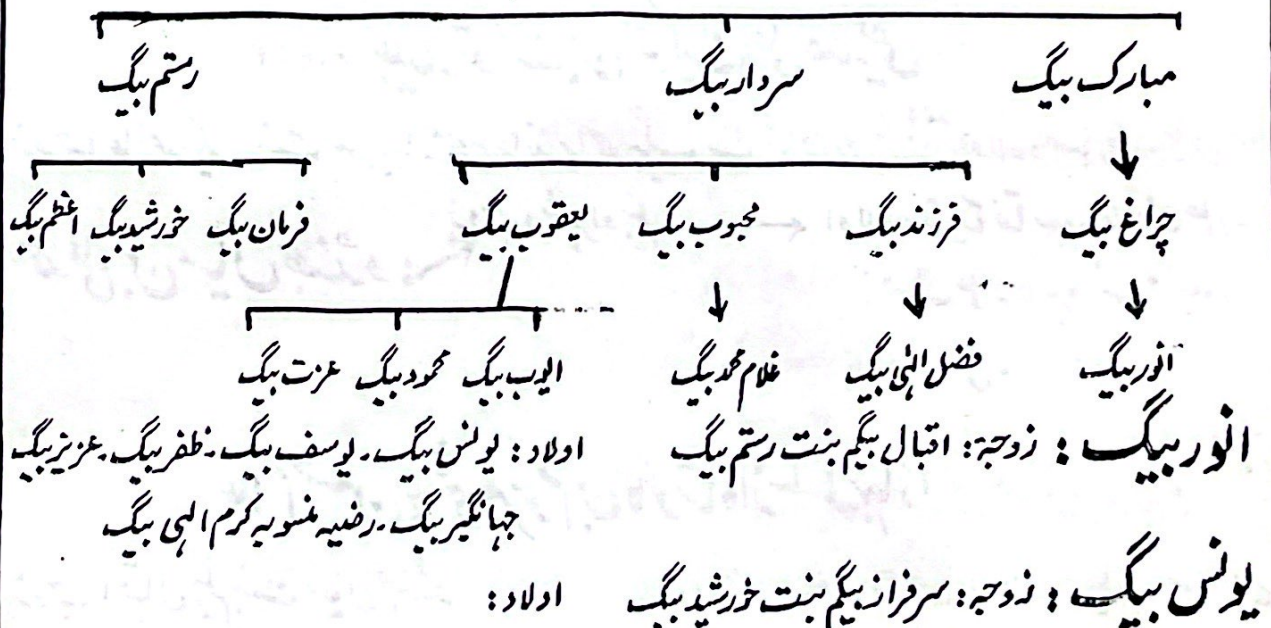 مبارک بیگ سردار بیگ رستم بیگ
چراغ بیگ فرزند بیگ محبوب بیگ یعقوب بیگ فرمان بیگ خورشید بیگ اعظم بیگ
انور بیگ فضل الٰہی بیگ غلام محمد بیگ ایوب بیگ محمود بیگ عزت بیگ
انور بیگ : زوجہ: اقبال بیگم بنت رستم بیگ اولاد: یونس بیگ۔ یوسف بیگ۔ ظفر بیگ۔ عزیز بیگ
جہانگیر بیگ۔ رضیہ منسوبہ کرم الہی بیگ
یونس بیگ : زوجہ: سرفراز بیگم بنت خورشید بیگ اولاد: